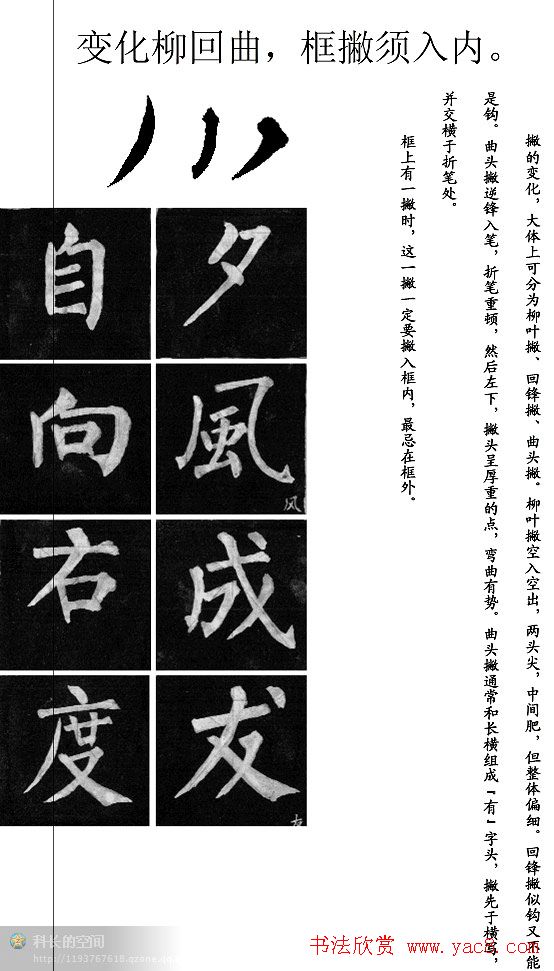 变化柳回曲，框撇须入内。
撇的变化，大体上可分为柳叶撇、回锋撇、曲头撇。柳叶撇空入空出，两头尖，中间肥，但整体偏细。回锋撇似钩又不能
是钩。曲头撇逆锋入笔，折笔重顿，然后左下，撇头呈厚重的点，弯曲有势。曲头撇通常和长横组成“有”字头，撇先于横写，
并交横于折笔处。
框上有一撇时，这一撇一定要撇入框内，最忌在框外。
夕
風
风
成
友
自
向
右
度
科长的空间
http://1193767618.qzone.qq.com
书法欣赏 www.yac8.com